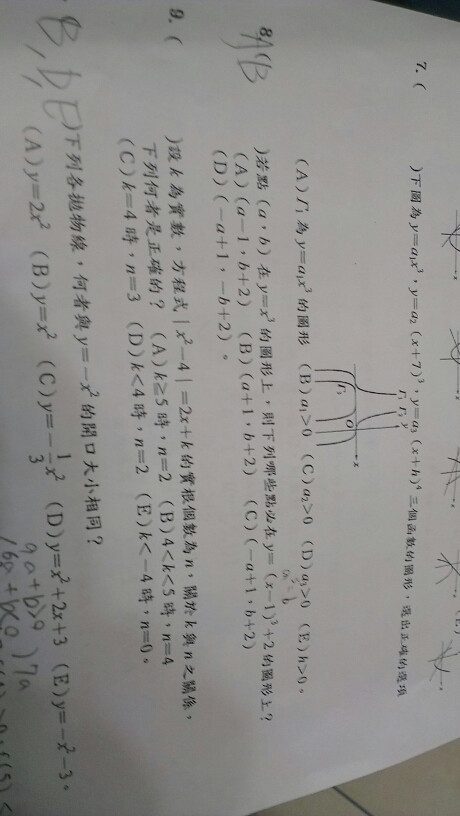 7. (　)下圖為 y=a₁x³，y=a₂(x+7)³，y=a₃(x+h)⁴ 三個函數的圖形，選出正確的選項
Γ₁ Γ₂ y
Γ₃ O x
(A) Γ₁ 為 y=a₁x³ 的圖形 (B) a₁>0 (C) a₂>0 (D) a₃>0 (E) h>0。
8. (AB)若點 (a, b) 在 y=x³ 的圖形上，則下列哪些點必在 y=(x−1)³+2 的圖形上？
(A) (a−1, b+2) (B) (a+1, b+2) (C) (−a+1, b+2)
(D) (−a+1, −b+2)。
9. (　)設 k 為實數，方程式 |x²−4|=2x+k 的實根個數為 n，關於 k 與 n 之關係，
下列何者是正確的？ (A) k≥5 時，n=2 (B) 4<k<5 時，n=4
(C) k=4 時，n=3 (D) k<4 時，n=2 (E) k<−4 時，n=0。
B, D, E )下列各拋物線，何者與 y=−x² 的開口大小相同？
(A) y=2x² (B) y=x² (C) y=−1/3x² (D) y=x²+2x+3 (E) y=−x²−3。